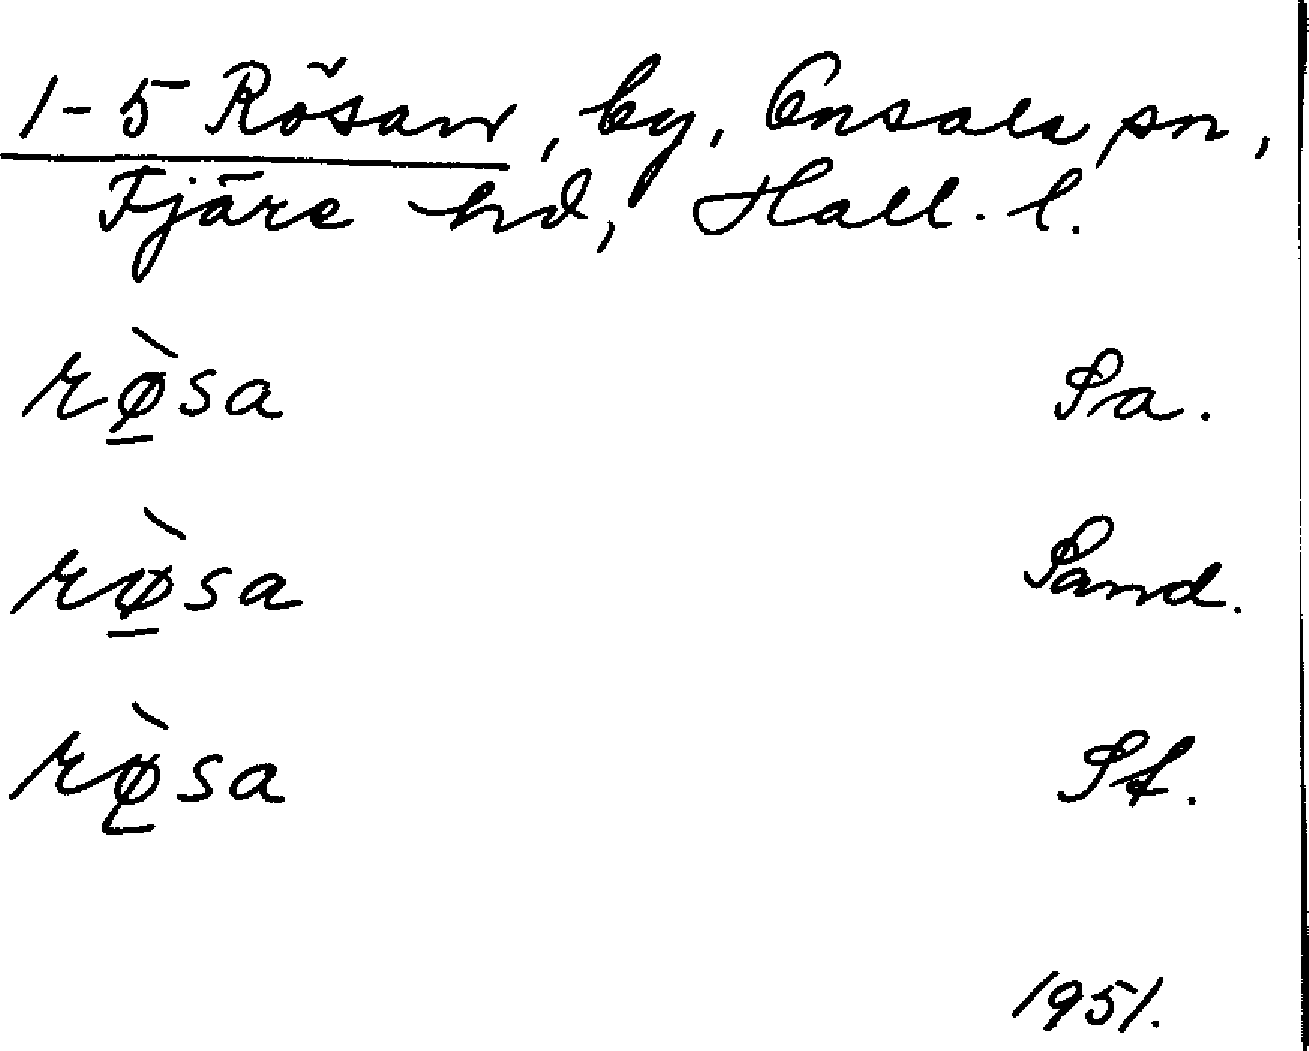 1-5 Rösan, by, Onsala sn,
Fjäre hd, Hall. l.
rø̱̀sa Sa.
rø̱̀sa Sand.
rø̱̀sa St.
1951.